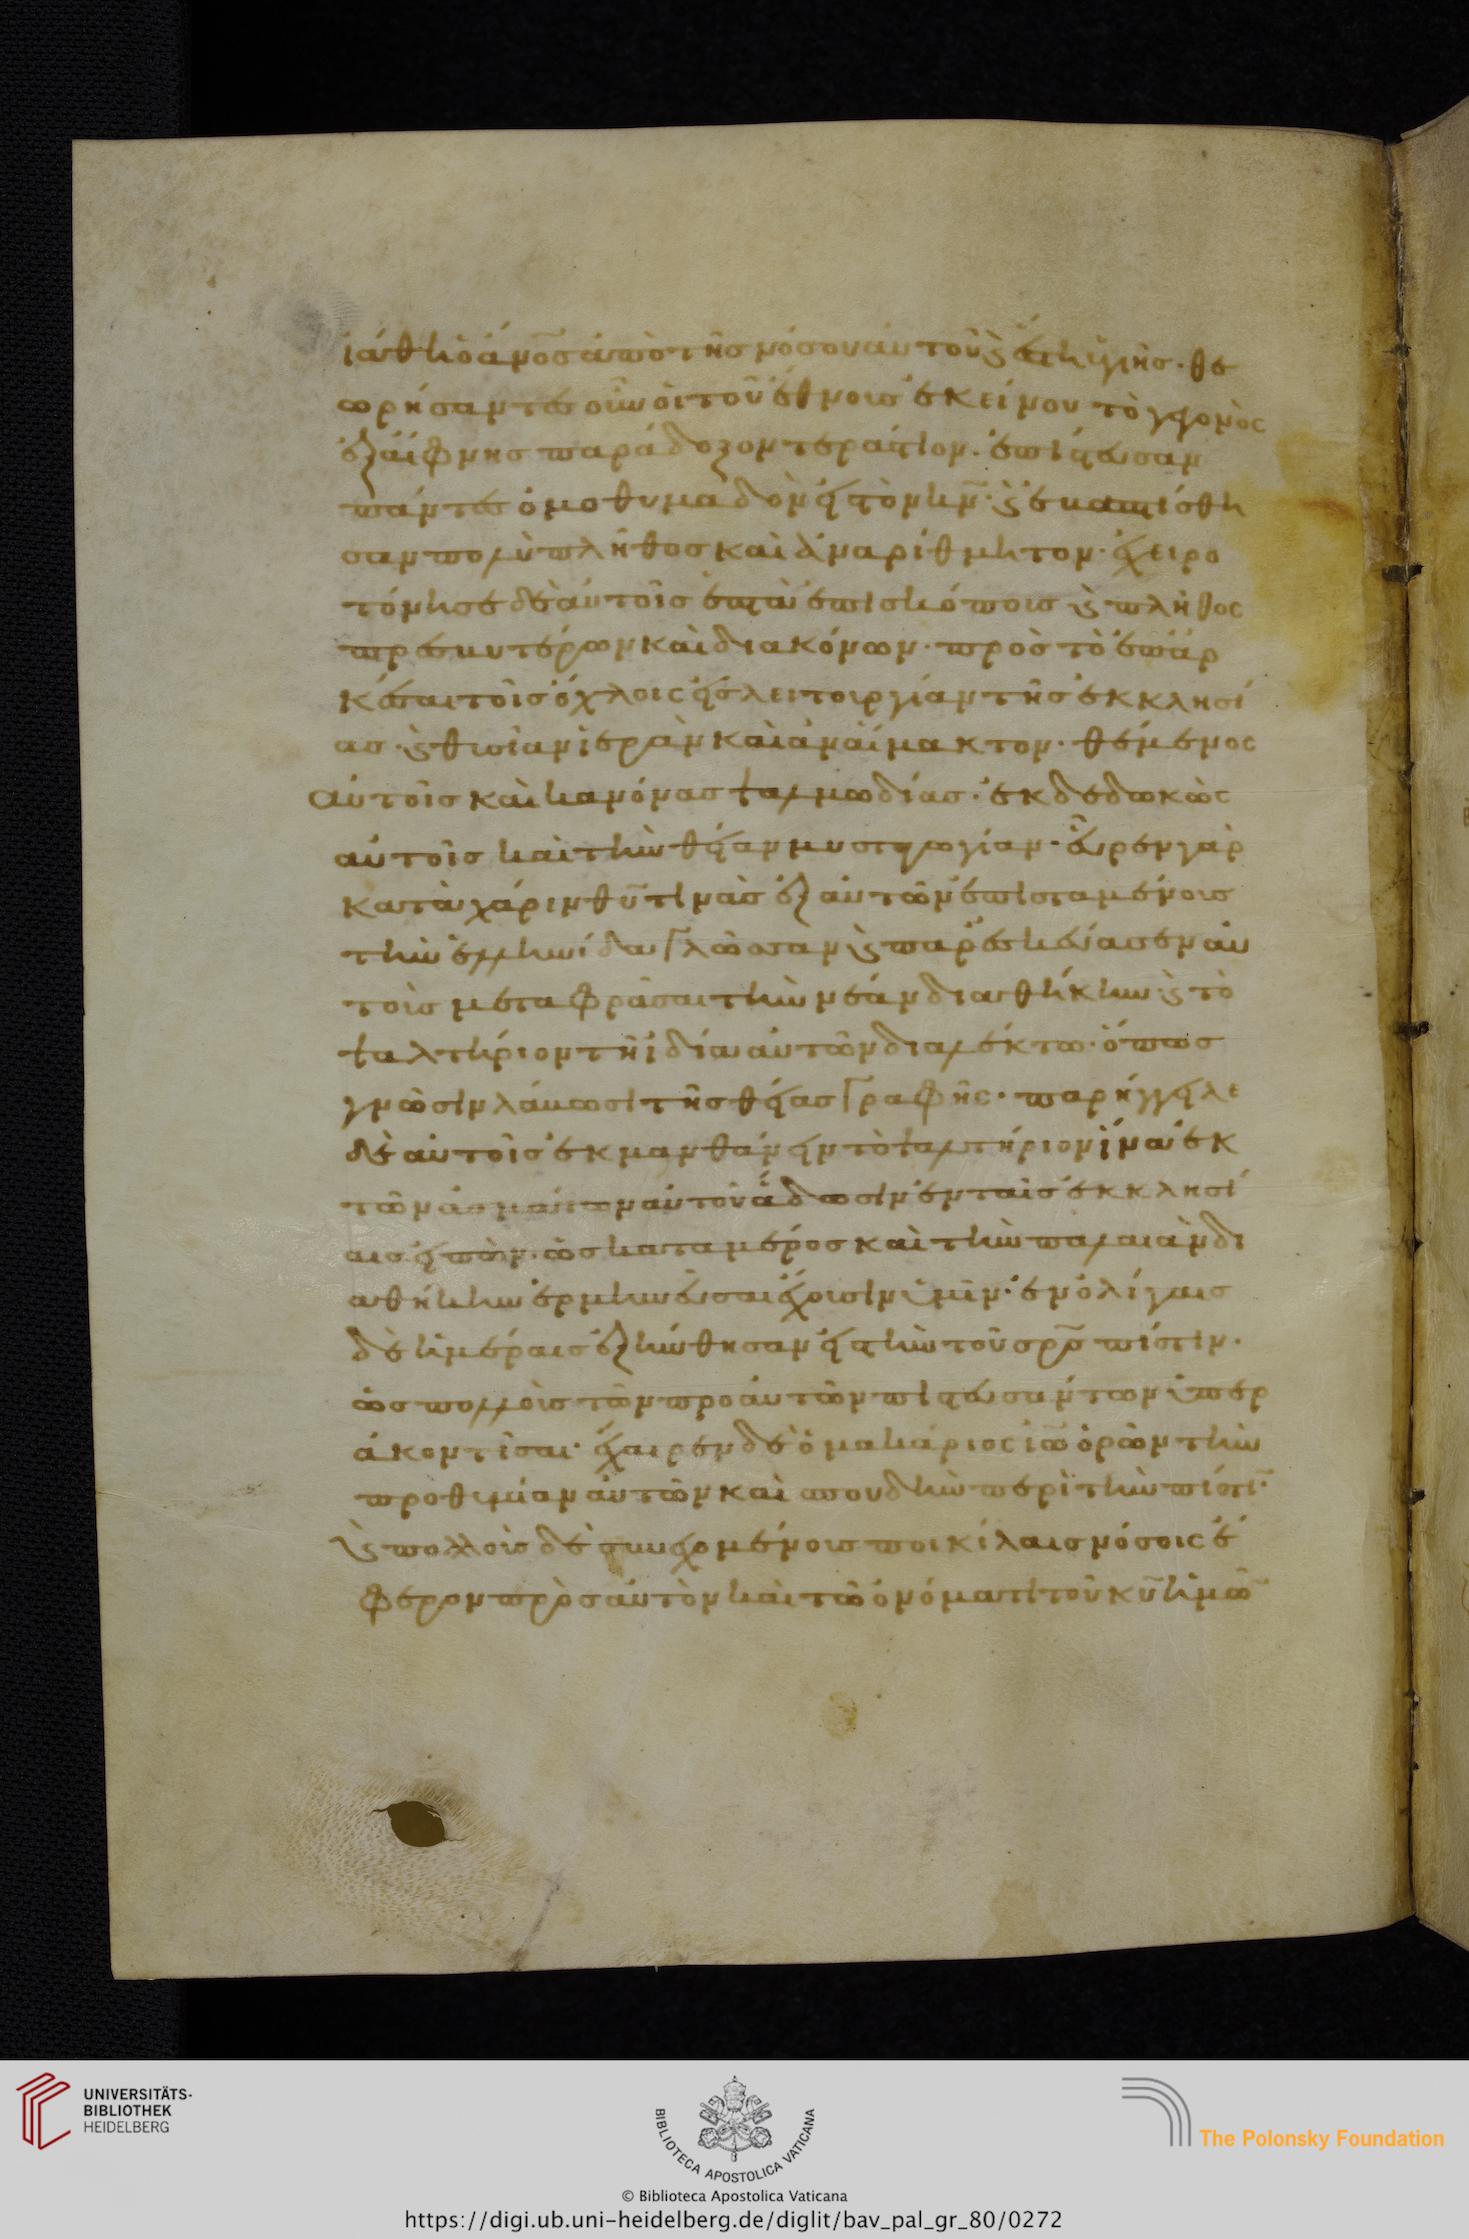 ἰάθη ὁ ἄν̅ο̅ς̅ ἀπὸ τῆς νόσου αὐτοῦ ϗ ἔστη ὑγιὴς· θε
ωρήσαντες οὖν οἱ τοῦ ἔθνους ἐκείνου τὸ γεγονὸς
ἐξάιφνης παράδοξον τεράστιον. ἐπίστευσαν
πάντες ὁμοθυμαδὸν εἰς τὸν κν̅· ϗ ἐβαπτίσθη
σαν πολὺ πλῆθος καὶ ἀναρίθμητον· ἐχειρο
τόνησε δὲ αὐτοῖς ἑπτὰ ἐπισκόπους ϗ πλῆθος
πρεσβυτέρων καὶ διακόνων· πρὸς τὸ ἐπαρ
κέσαι τοῖς ὄχλοις εἰς λειτουργίαν τῆς ἐκκλησί
ας· ϗ θυσίαν ἱερὰν καὶ ἀναίμακτον· θέμενος
αὐτοῖς καὶ κανόνας ψαλμωδίας· ἐκδεδωκὼς
αὐτοῖς καὶ τὴν θείαν μυσταγωγίαν· εὗρεν γὰρ
κατὰ χάριν θυ̅ τινὰς ἐξ αὐτῶν ἐπισταμένους
τὴν ἑλληνίδα γλῶσσαν ϗ παρεσκεύασεν αὐ
τοὺς μεταφράσαι τὴν νέαν διαθήκην ϗ τὸ
ψαλτήριον τῆ ἰδία αὐτῶν διαλέκτω· ὅπως
γνῶσιν λάβωσι τῆς θείας γραφῆς· παρήγγειλε
δὲ αὐτοῖς ἐκμανθάνειν τὸ ψαλτήριον ἵνα ἐκ
τῶν ἀσμάτων αὐτοῦ ἄδωσιν ἐν ταῖς ἐκκλησί
αις εἰπὼν· ὡς κατα μέρος καὶ τὴν παλαιὰν δι
αθήκην ἑρμηνεῦσαι ἔχουσιν ὑμῖν· ἐν ὀλίγαις
δὲ ἡμέραις ἐξηύθησαν εἰς τὴν τοῦ σρ̅σ̅ πίστιν·
ὡς πολλοὺς τῶν προ αὐτῶν πιστευσάντων ὑπερ
ἀκοντίσαι· ἔχαιρεν δὲ ὁ μακάριος ἰω̅ ὁρῶν τὴν
προθυμίαν αὐτῶν καὶ σπουδὴν περὶ τὴν πίστι̅·
ϗ πολλοὺς δὲ συνεχομένους ποικίλαις νόσοις ἔ
φερον πρὸς αὐτὸν καὶ τῶ ὀνόματι τοῦ κυ̅ ἡμῶ̅
UNIVERSITÄTS-
BIBLIOTHEK
HEIDELBERG
BIBLIOTECA APOSTOLICA VATICANA
The Polonsky Foundation
© Biblioteca Apostolica Vaticana
https://digi.ub.uni-heidelberg.de/diglit/bav_pal_gr_80/0272